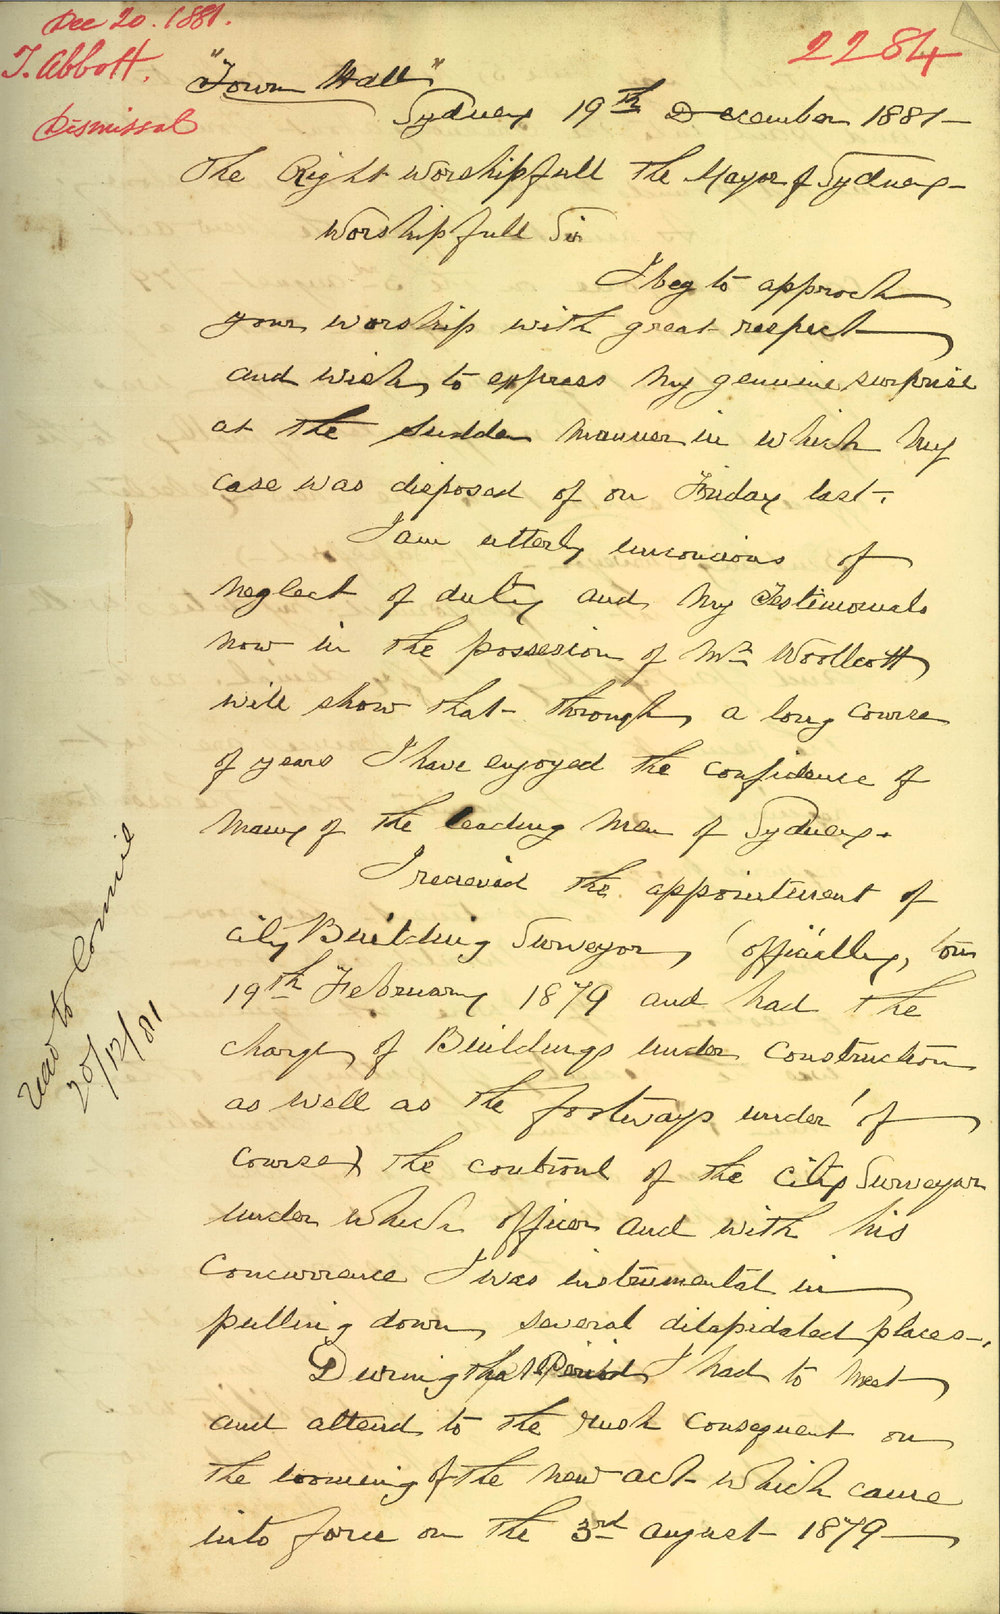 Dec 20. 1881.
T. Abbott.
Dismissal
2284
"Town Hall"
Sydney 19th December 1881—
The Right Worshipfull The Mayor of Sydney—
Worshipfull Sir
I beg to approch
your worship with great respect
and wish to express my genuine surprise
at the sudden manner in which my
case was disposed of on Friday last.
I am utterly unconcious of
neglect of duty and my Testimonials
now in the possesion of Mr Woollcott
will show that through a long course
of years I have enjoyed the confidence of
many of the leading men of Sydney.
I recieved the appointment of
city Building Surveyor, (officially, on
19th February 1879 and had the
charge of Buildings under construction
as well as the footways under (of
course) the controul of the city Surveyor
under which officer and with his
concurrence I was instrumental in
pulling down several dilapidated places—.
During that Period I had to meet
and attend to the rush consequent on
the looming of the new act which came
into force on the 3rd august 1879—
20/12/81